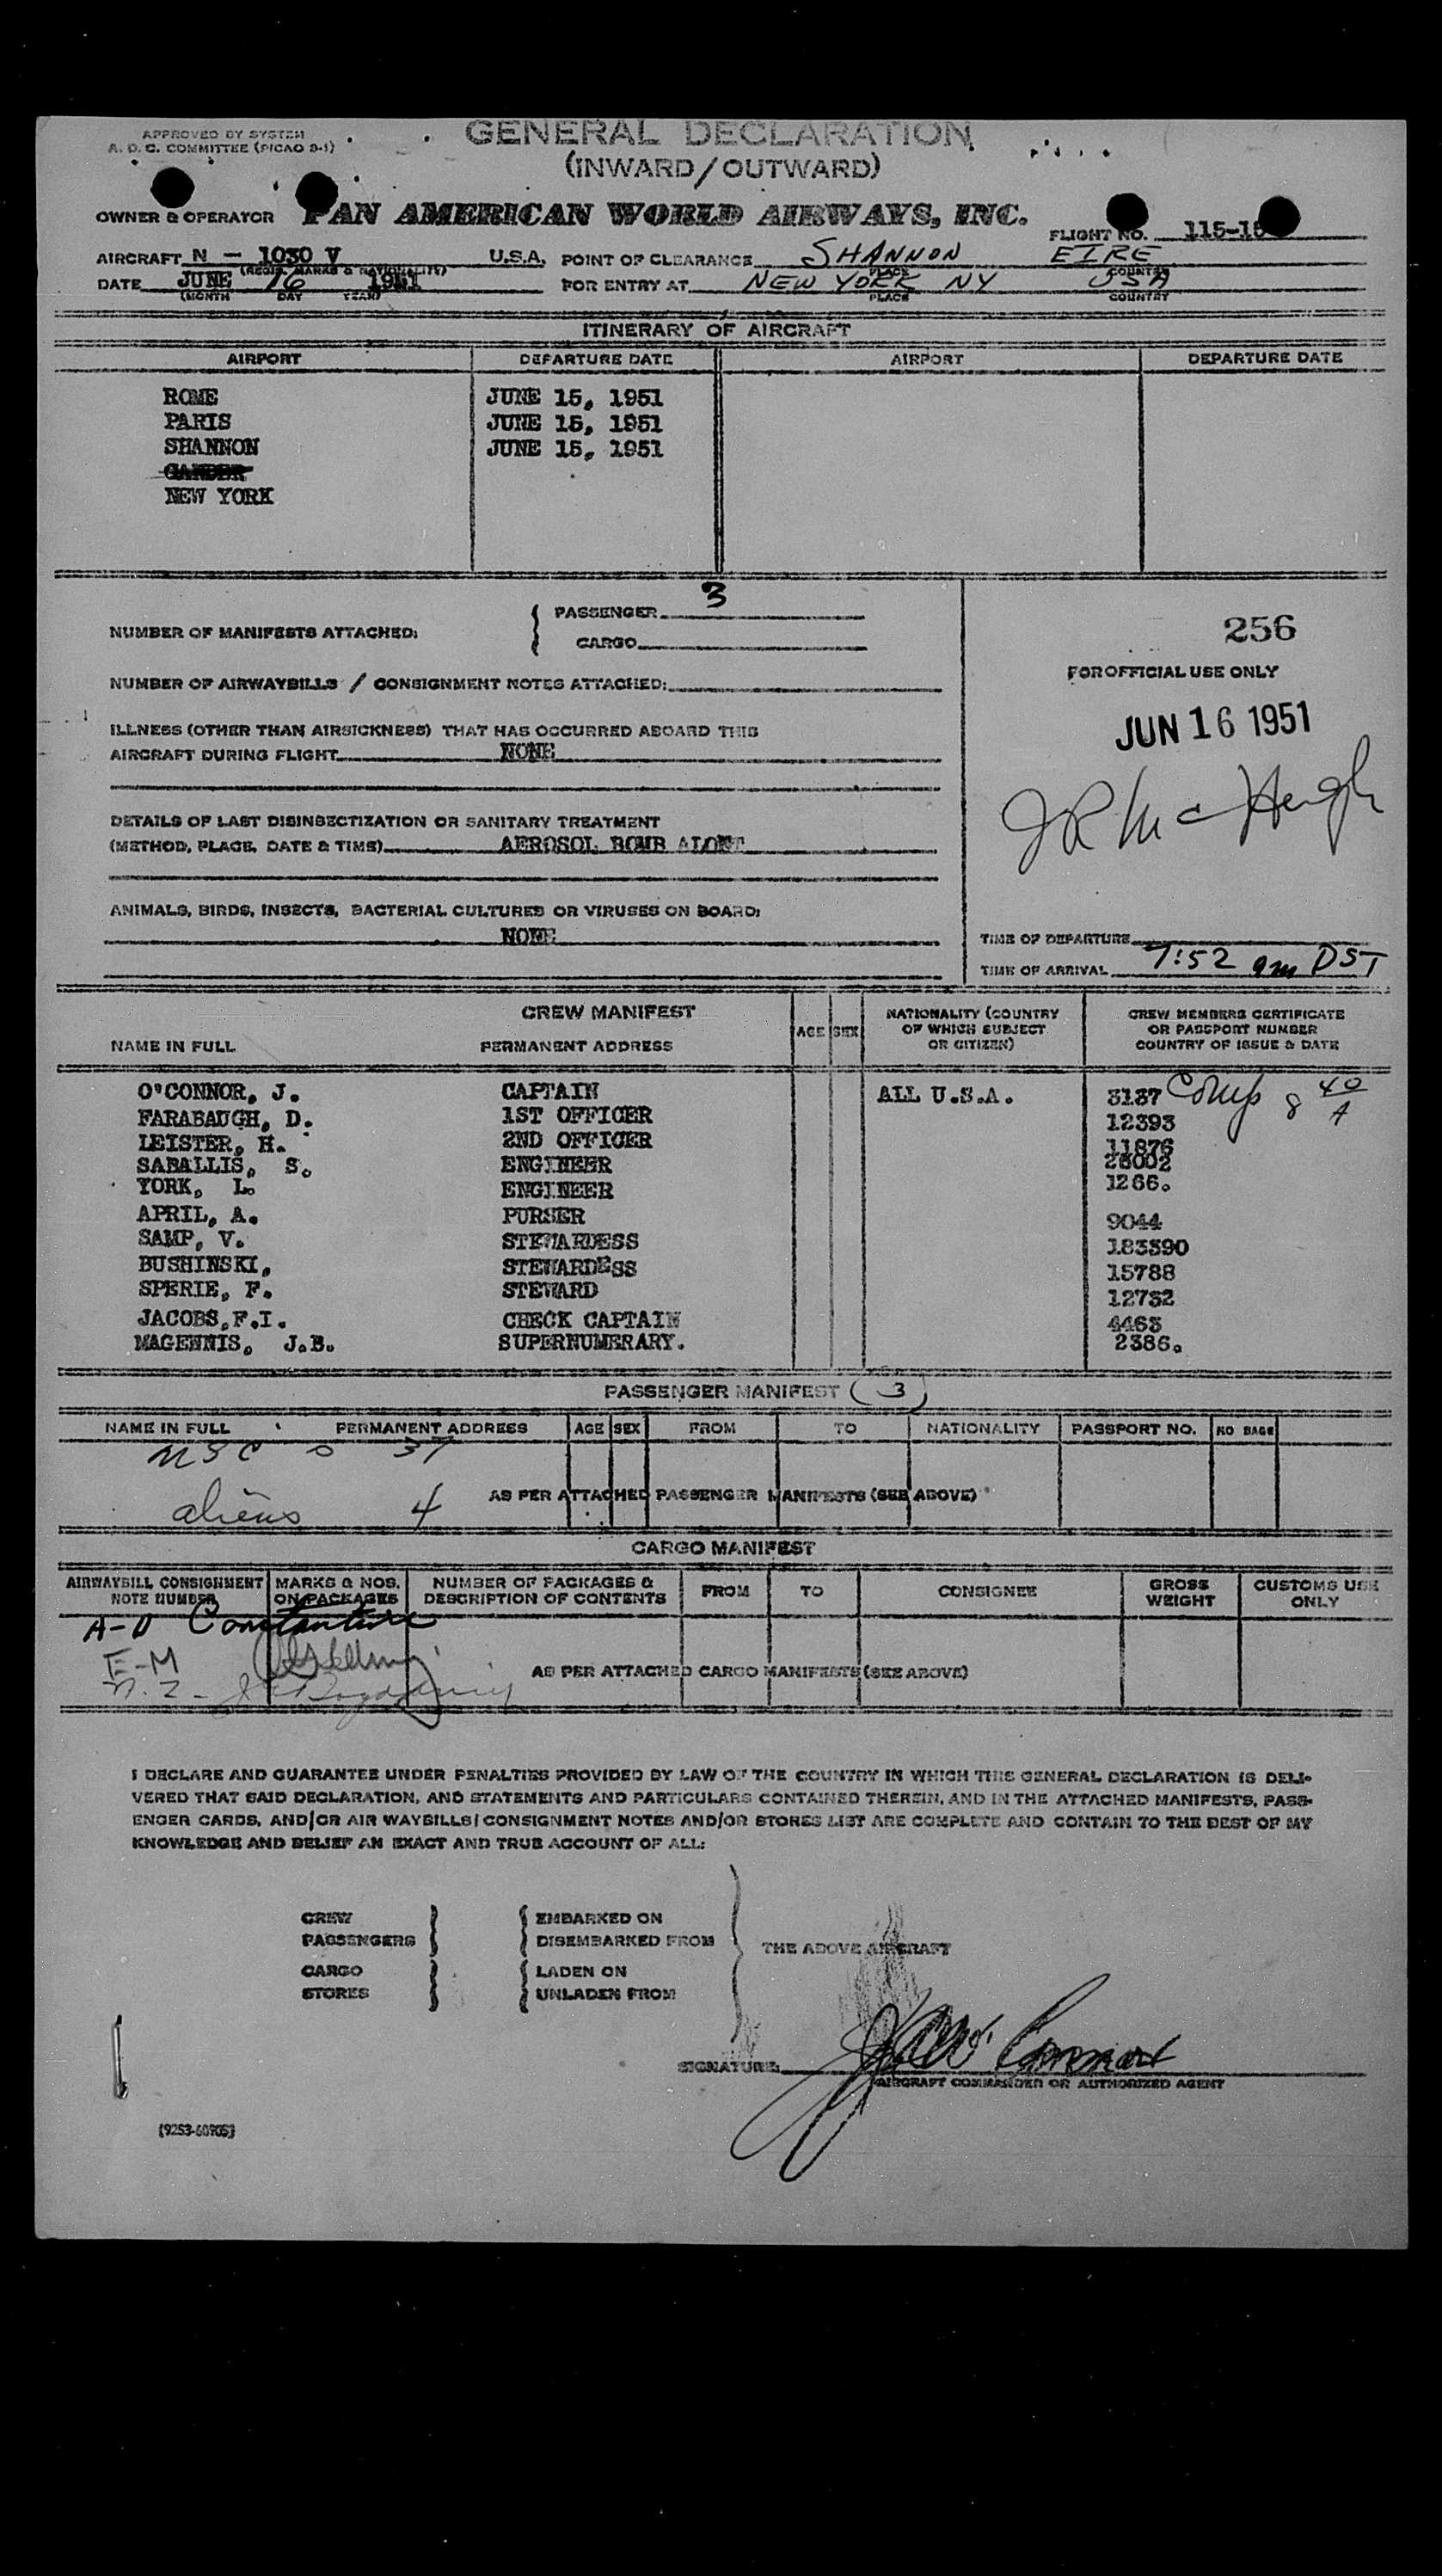 APPROVED BY SYSTEM
A. D. C. COMMITTEE (PICAO 9-1)
GENERAL DECLARATION
(INWARD/OUTWARD)
OWNER & OPERATOR PAN AMERICAN WORLD AIRWAYS, INC.
FLIGHT NO. 115-15
AIRCRAFT N - 1030 V U.S.A. POINT OF CLEARANCE SHANNON EIRE
(REGIS. MARKS & NATIONALITY) PLACE COUNTRY
DATE JUNE 16 1951 FOR ENTRY AT NEW YORK NY USA
(MONTH DAY YEAR) PLACE COUNTRY
ITINERARY OF AIRCRAFT
AIRPORT DEPARTURE DATE AIRPORT DEPARTURE DATE
ROME JUNE 15, 1951
PARIS JUNE 15, 1951
SHANNON JUNE 15, 1951
GANDER
NEW YORK
NUMBER OF MANIFESTS ATTACHED: PASSENGER 3
CARGO
256
NUMBER OF AIRWAYBILLS / CONSIGNMENT NOTES ATTACHED:
FOR OFFICIAL USE ONLY
JUN 16 1951
ILLNESS (OTHER THAN AIRSICKNESS) THAT HAS OCCURRED ABOARD THIS
AIRCRAFT DURING FLIGHT NONE
JR McHugh
DETAILS OF LAST DISINSECTIZATION OR SANITARY TREATMENT
(METHOD, PLACE, DATE & TIME) AEROSOL BOMB ALOFT
ANIMALS, BIRDS, INSECTS, BACTERIAL CULTURES OR VIRUSES ON BOARD:
NONE
TIME OF DEPARTURE
TIME OF ARRIVAL 7:52 am DST
CREW MANIFEST
NAME IN FULL PERMANENT ADDRESS AGE SEX NATIONALITY (COUNTRY OF WHICH SUBJECT OR CITIZEN) CREW MEMBERS CERTIFICATE OR PASSPORT NUMBER COUNTRY OF ISSUE & DATE
O'CONNOR, J. CAPTAIN ALL U.S.A. 3137 Comp 8 40/A
FARABAUGH, D. 1ST OFFICER 12393
LEISTER, H. 2ND OFFICER 11876
SABALLIS, S. ENGINEER 26002
YORK, L. ENGINEER 1266.
APRIL, A. PURSER 9044
SAMP, V. STEWARDESS 183390
BUSHINSKI, STEWARDESS 15788
SPERIE, F. STEWARD 12732
JACOBS, F.I. CHECK CAPTAIN 4463
MAGENNIS, J.B. SUPERNUMERARY. 2386.
PASSENGER MANIFEST (3)
NAME IN FULL PERMANENT ADDRESS AGE SEX FROM TO NATIONALITY PASSPORT NO. NO BAGS
37
AS PER ATTACHED PASSENGER MANIFESTS (SEE ABOVE)
aliens 4
CARGO MANIFEST
AIRWAYBILL CONSIGNMENT NOTE NUMBER MARKS & NOS. ON PACKAGES NUMBER OF PACKAGES & DESCRIPTION OF CONTENTS FROM TO CONSIGNEE GROSS WEIGHT CUSTOMS USE ONLY
A-D
E-M
AS PER ATTACHED CARGO MANIFESTS (SEE ABOVE)
N-Z
I DECLARE AND GUARANTEE UNDER PENALTIES PROVIDED BY LAW OF THE COUNTRY IN WHICH THIS GENERAL DECLARATION IS DELI-
VERED THAT SAID DECLARATION, AND STATEMENTS AND PARTICULARS CONTAINED THEREIN, AND IN THE ATTACHED MANIFESTS, PASS-
ENGER CARDS, AND/OR AIR WAYBILLS/CONSIGNMENT NOTES AND/OR STORES LIST ARE COMPLETE AND CONTAIN TO THE BEST OF MY
KNOWLEDGE AND BELIEF AN EXACT AND TRUE ACCOUNT OF ALL:
CREW EMBARKED ON
PASSENGERS DISEMBARKED FROM
THE ABOVE AIRCRAFT
CARGO LADEN ON
STORES UNLADEN FROM
SIGNATURE:
AIRCRAFT COMMANDER OR AUTHORIZED AGENT
(9253-60905)